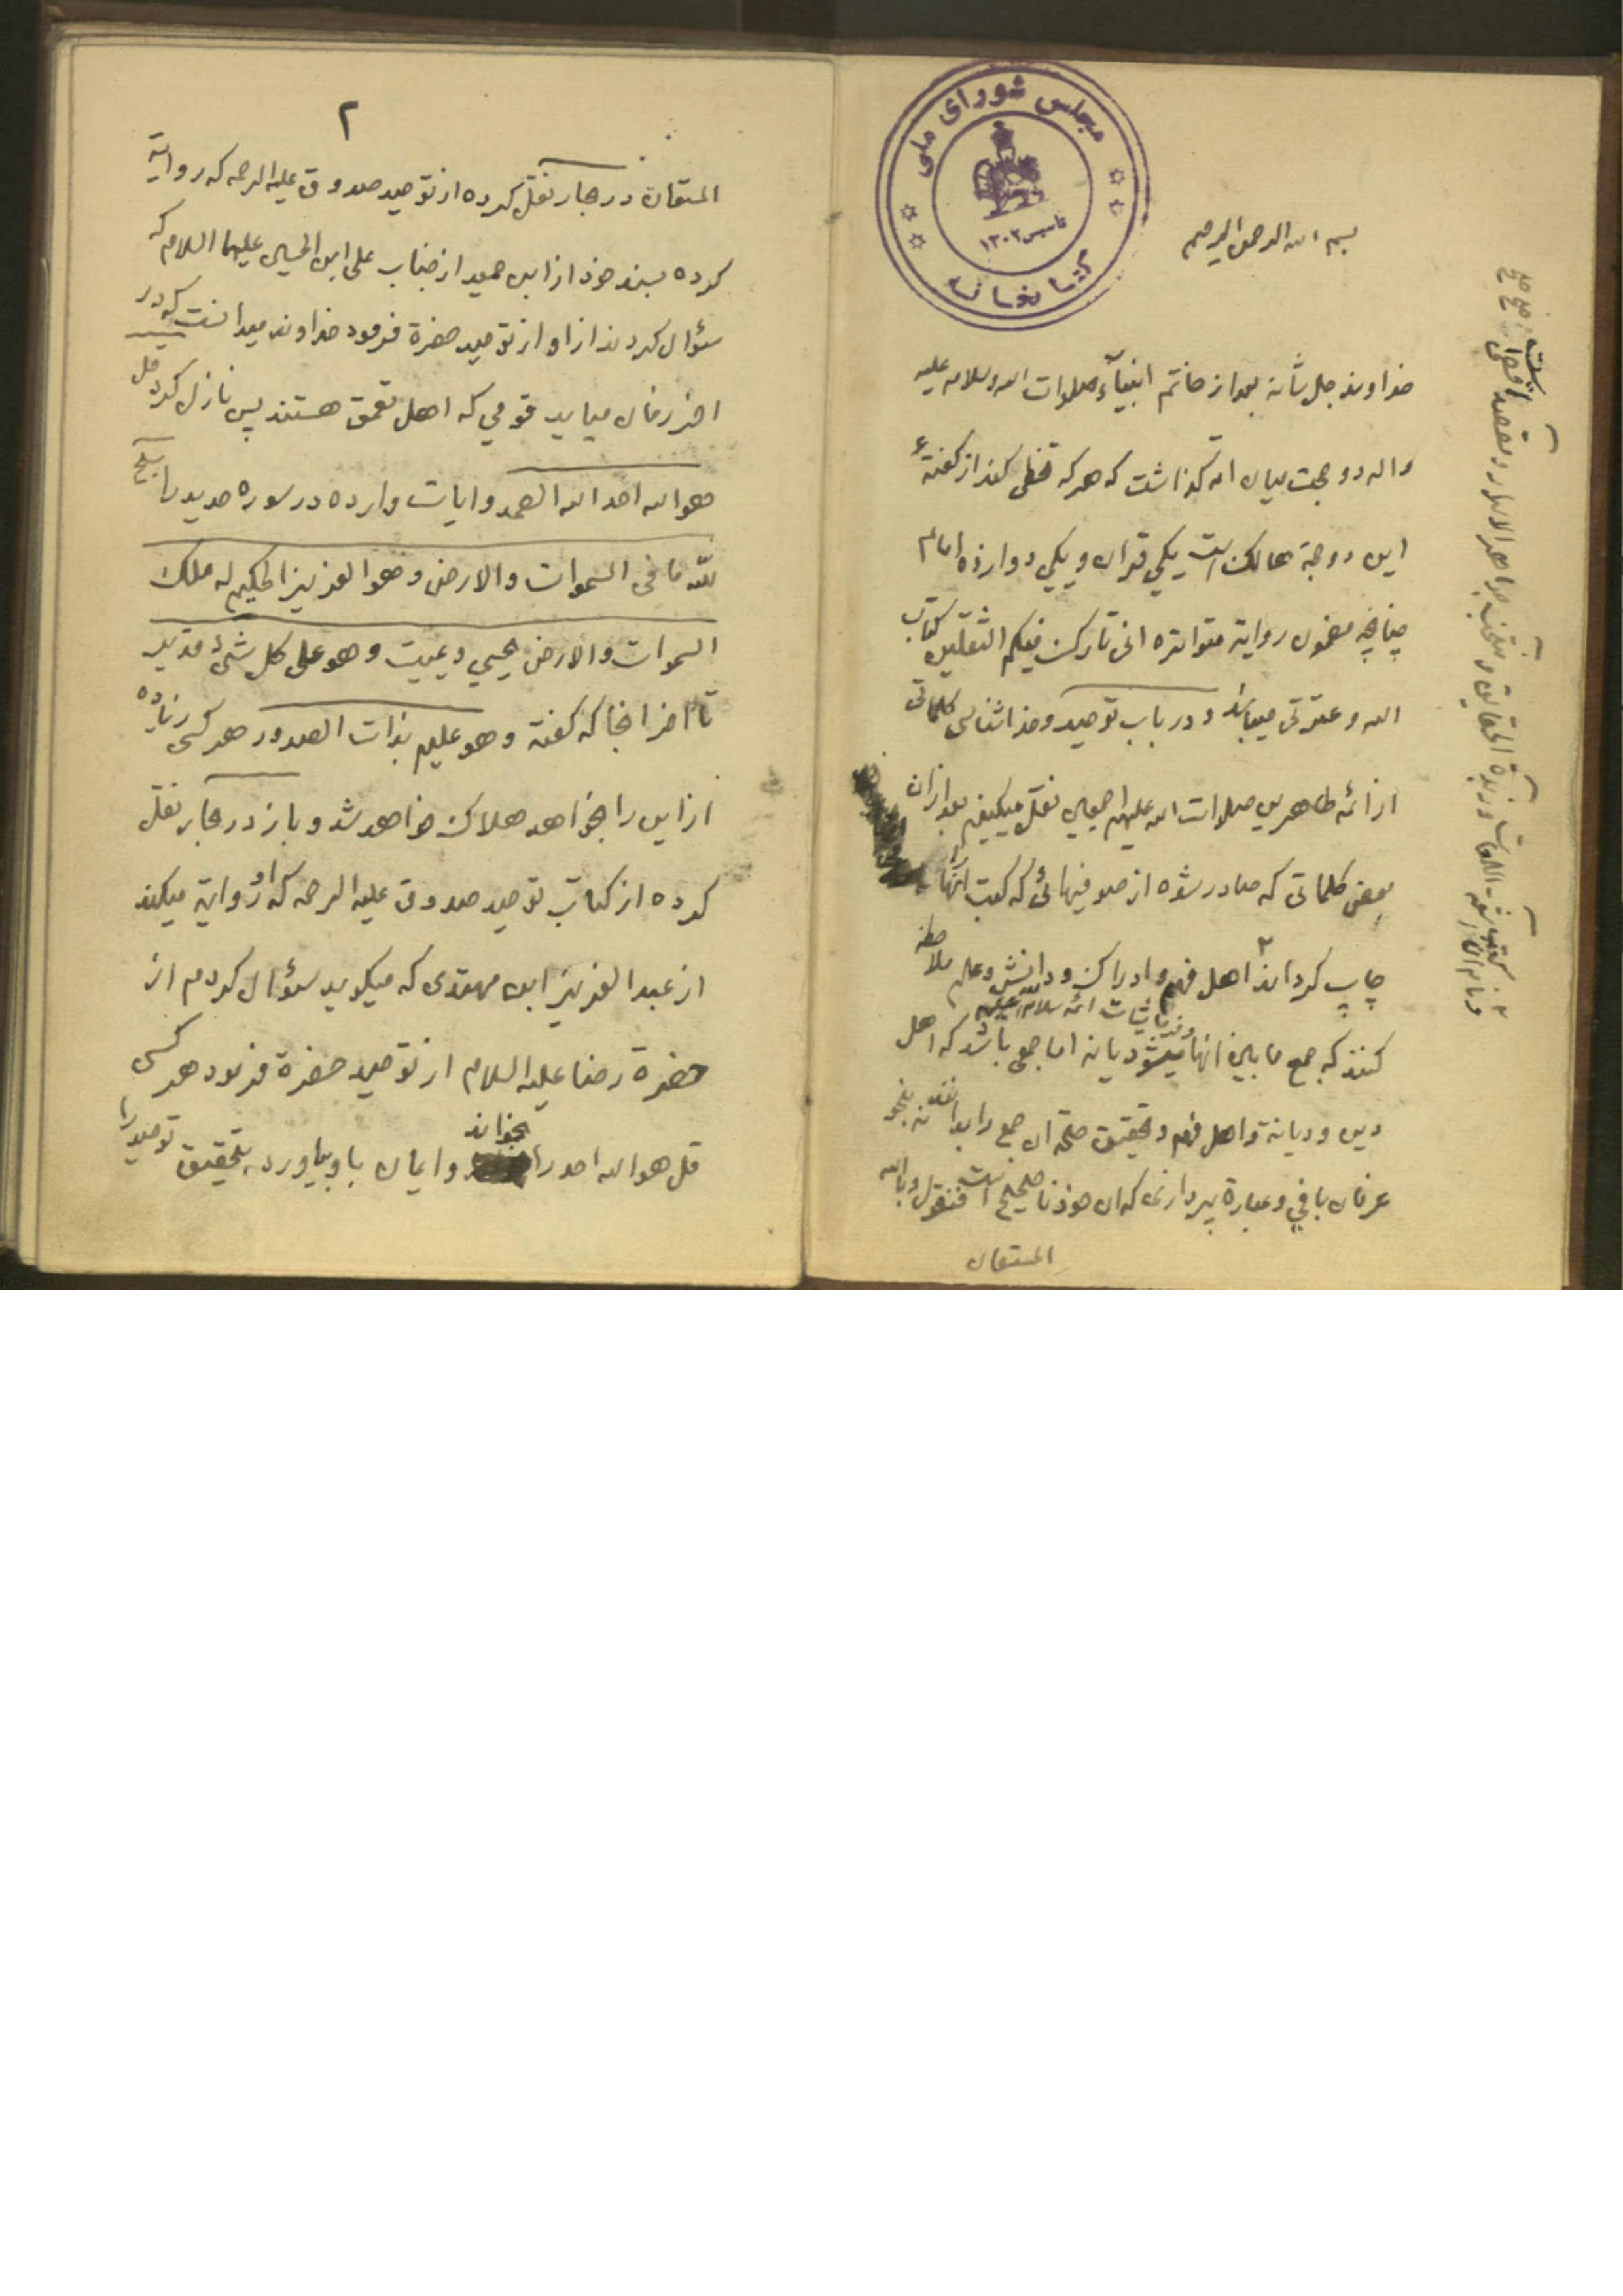 مجلس شورای ملی
تاسیس ۱۳۰۲
کتابخانه
بسم الله الرحمن الرحیم
خداوند جل شأنه بعد از خاتم انبیآء صلوات الله وسلامه علیه
واله دو حجت میان امه گذاشت که هرکه تخطی کند از گفته
این دو حجة هالک است یکی قران و یکی دوازده امام
چنانچه مضمون روایة متواتره انی تارک فیکم الثقلین کتاب
الله و عترتی میباشد و در باب توحید و خداشناسی کلماتی
از ائمه طاهرین صلوات الله علیهم اجمعین نقل میکنیم بعد ازان
بعض کلماتی که صادر شده از صوفیهائی که کتب انها را
چاپ کرده‌اند ۲ اهل فهم و ادراک و دانش و علم ملاحظه
کنند که جمع مابین انها و فرمایشات ائمه سلام الله علیهم میشود یا نه اما جمعی باشد که اهل
دین و دیانة و اهل فهم و تحقیق صحة ان جمع را بدانند نه بنحو
عرفان بافی و عبارة پردازی که ان خود ناصحیح است فنقول وبالله
المستعان
۲
المستعان در بحار نقل کرده از توحید صدوق علیه الرحمه که روایة
کرده بسند خود از ابن حمید از جناب علی ابن الحسین علیهما السلام که
سؤال کردند از او از توحید حضرة فرمود خداوند میدانست که در
اخر زمان میاید قومی که اهل تعمق هستند پس نازل کرد قل
هو الله احد الله الصمد و ایات وارده در سوره حدید را سبح
لله ما فی السموات والارض وهو العزیز الحکیم له ملک
السموات والارض یحیی ویمیت وهو علی کل شئ قدیر
تا اخر انجا که گفته وهو علیم بذات الصدور هر کس زیاده
از این را بخواهد هلاک خواهد شد و باز در بحار نقل
کرده از کتاب توحید صدوق علیه الرحمه که او روایة میکند
از عبد العزیز ابن مهتدی که میگوید سؤال کردم از
حضرة رضا علیه السلام از توحید حضرة فرمود هر کسی
قل هو الله احد را بخواند و ایمان باو بیاورد به تحقیق توحید را